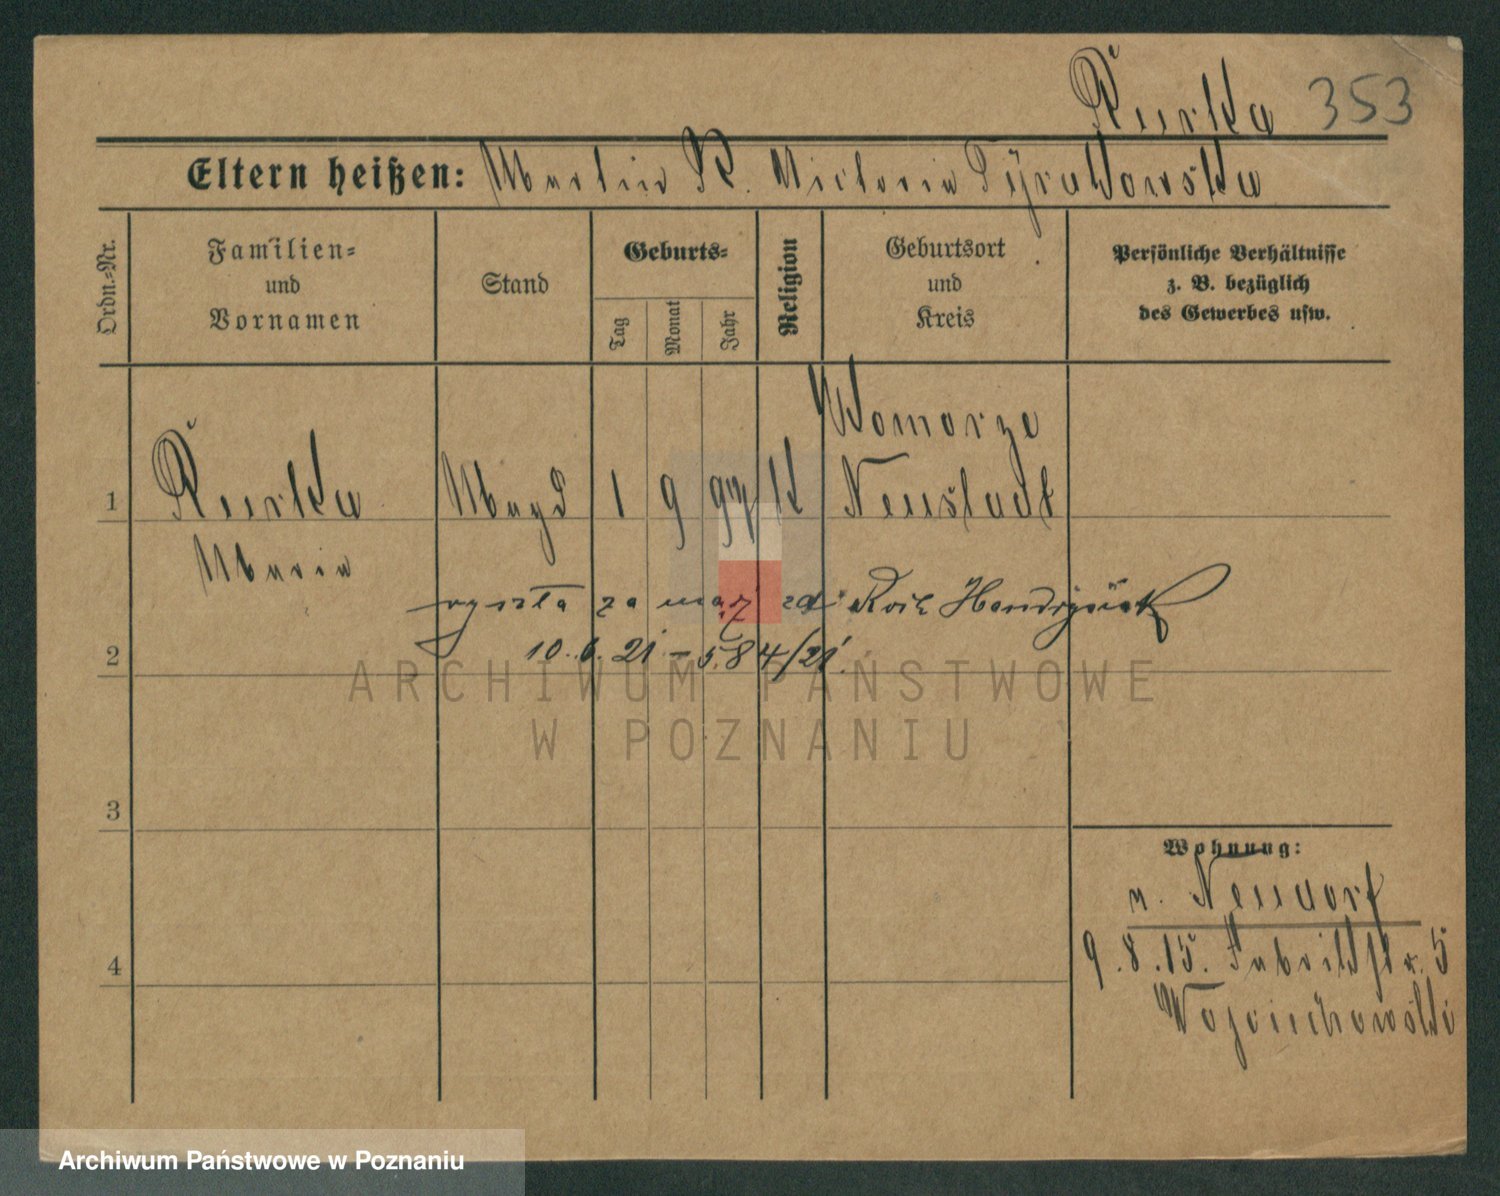 Kurka 353
Eltern heißen: Martin K. Victoria Tyrakowska
Ordn.-Nr.
Familien- und Vornamen
Stand
Geburts-
Tag
Monat
Jahr
Religion
Geburtsort und Kreis
Persönliche Verhältnisse z. B. bezüglich des Gewerbes usw.
Komorze
1 Kurka Magd 1 9 97 K Neustadt
Maria
za mąż
10.6.21 – 584/21
2
ARCHIWUM PAŃSTWOWE
W POZNANIU
3
Wohnung:
n. Neudorf
4
9.8.15. Fabrikstr. 5
Wojciechowski
Archiwum Państwowe w Poznaniu